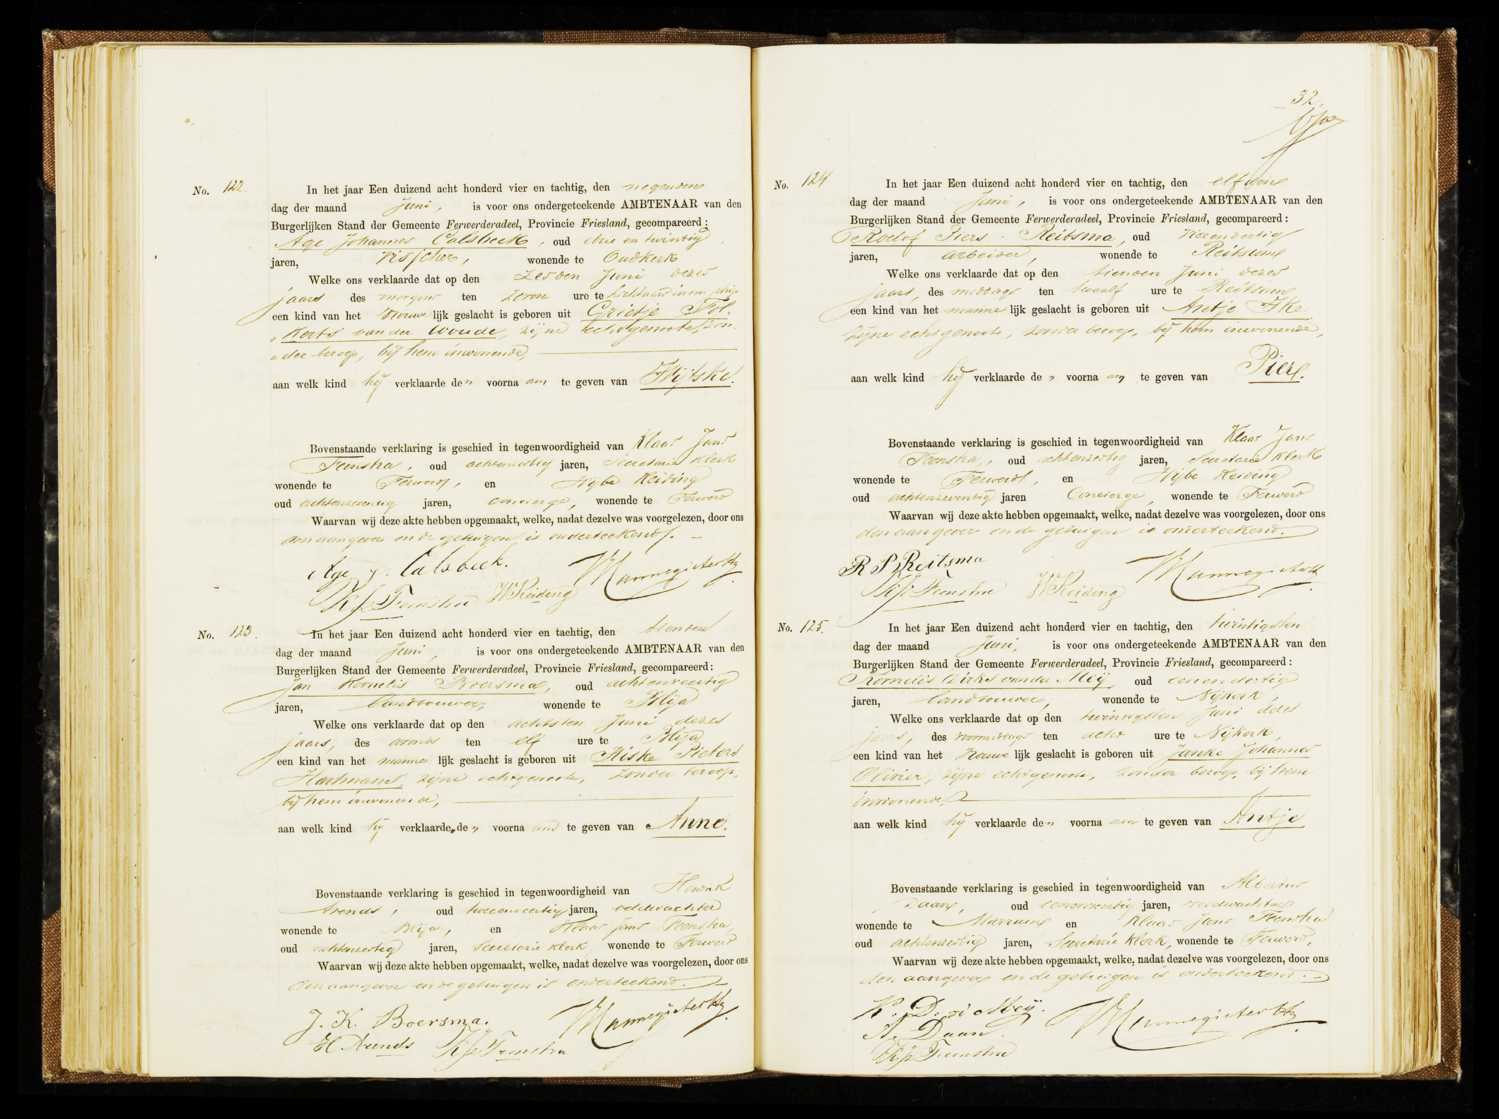 No. 122.
In het jaar Een duizend acht honderd vier en tachtig, den negenden
dag der maand Juni, is voor ons ondergeteekende AMBTENAAR van den
Burgerlijken Stand der Gemeente Ferwerderadeel, Provincie Friesland, gecompareerd:
Age Johannes Calsbeek, oud drie en twintig
jaren, visscher, wonende te Oudkerk
Welke ons verklaarde dat op den zesden Juni dezes
jaars des morgens ten zeven ure te
een kind van het vrouwelijk geslacht is geboren uit Grietje Fol-
kerts van der Woude, zijne echtgenoote, zon-
der beroep, bij hem inwonende,
aan welk kind hij verklaarde den voornaam te geven van Hijlske.
Bovenstaande verklaring is geschied in tegenwoordigheid van Klaas Jans
Feenstra, oud achtenveertig jaren, Secretarie klerk
wonende te Ferwerd, en Wybe Keiding
oud achtenzeventig jaren, concierge, wonende te Ferwerd
Waarvan wij deze akte hebben opgemaakt, welke, nadat dezelve was voorgelezen, door ons
den aangever en de getuigen is onderteekend.
Age J. Calsbeek.
Kjs Feenstra W Keiding
No. 123.
In het jaar Een duizend acht honderd vier en tachtig, den tienden
dag der maand Juni, is voor ons ondergeteekende AMBTENAAR van den
Burgerlijken Stand der Gemeente Ferwerderadeel, Provincie Friesland, gecompareerd:
Jan Kornelis Boersma, oud achtenveertig
jaren, landbouwer, wonende te Blija
Welke ons verklaarde dat op den achtsten Juni dezes
jaars, des avonds ten elf ure te Blija
een kind van het mannelijk geslacht is geboren uit Hiske Pieters
Hartmans, zijne echtgenoote, zonder beroep,
bij hem inwonende,
aan welk kind hij verklaarde den voornaam te geven van Anne.
Bovenstaande verklaring is geschied in tegenwoordigheid van Hendrik
Arends, oud tweeenveertig jaren, veldwachter
wonende te Blija, en Klaas Jans Feenstra,
oud achtenveertig jaren, Secretarie klerk wonende te Ferwerd
Waarvan wij deze akte hebben opgemaakt, welke, nadat dezelve was voorgelezen, door ons
den aangever en de getuigen is onderteekend.
J. K. Boersma.
H Arends Kjs Feenstra
32.
No. 124
In het jaar Een duizend acht honderd vier en tachtig, den elfden
dag der maand Juni, is voor ons ondergeteekende AMBTENAAR van den
Burgerlijken Stand der Gemeente Ferwerderadeel, Provincie Friesland, gecompareerd:
Roelof Piers Reitsma, oud
jaren, arbeider, wonende te Reitsum
Welke ons verklaarde dat op den tienden Juni dezes
jaars, des middags ten twaalf ure te Reitsum
een kind van het mannelijk geslacht is geboren uit Antje Ike
zijne echtgenoote, zonder beroep, bij hem inwonende,
aan welk kind hij verklaarde den voornaam te geven van Pier.
Bovenstaande verklaring is geschied in tegenwoordigheid van Klaas Jans
Feenstra, oud achtenveertig jaren, Secretarie klerk
wonende te Ferwerd, en Wybe Keiding
oud achtenzeventig jaren Concierge, wonende te Ferwerd
Waarvan wij deze akte hebben opgemaakt, welke, nadat dezelve was voorgelezen, door ons
den aangever en de getuigen is onderteekend.
R P Reitsma
Kjs Feenstra W Keiding
No. 125.
In het jaar Een duizend acht honderd vier en tachtig, den twintigsten
dag der maand Juni, is voor ons ondergeteekende AMBTENAAR van den
Burgerlijken Stand der Gemeente Ferwerderadeel, Provincie Friesland, gecompareerd:
Kornelis Dirks van der Meij oud eenendertig
jaren, landbouwer, wonende te Nijkerk,
Welke ons verklaarde dat op den twintigsten Juni dezes
jaars, des voormiddags ten acht ure te Nijkerk,
een kind van het vrouwelijk geslacht is geboren uit Janke Johannes
Olivier, zijne echtgenoote, zonder beroep, bij hem
inwonende
aan welk kind hij verklaarde den voornaam te geven van Antje
Bovenstaande verklaring is geschied in tegenwoordigheid van Albarus
Daan, oud jaren, veldwachter
wonende te Marrum en Klaas Jans Feenstra
oud achtenveertig jaren, Secretarie klerk, wonende te Ferwerd,
Waarvan wij deze akte hebben opgemaakt, welke, nadat dezelve was voorgelezen, door ons
den aangever en de getuigen is onderteekend.
K. D. v. d. Meij.
A. Daan
Kjs Feenstra